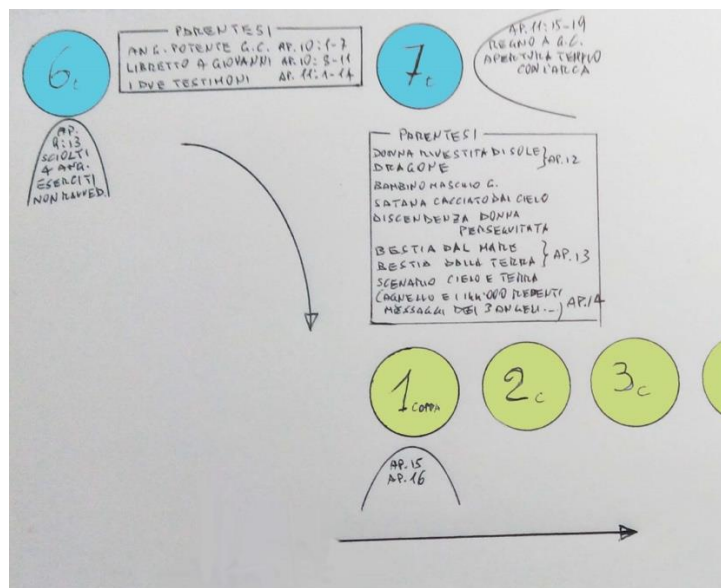 6 t
PARENTESI
ANG. POTENTE G.C. AP. 10:1-7
LIBRETTO A GIOVANNI AP. 10:8-11
I DUE TESTIMONI AP. 11:1-14
7 t
AP. 11:15-19
REGNO A G.C.
APERTURA TEMPIO
CON L'ARCA
AP.
9:13
SCIOLTI
4 ANG.
ESERCITI
NON RAVVED.
PARENTESI
DONNA RIVESTITA DI SOLE } AP. 12
DRAGONE
BAMBINO MASCHIO G.
SATANA CACCIATO DAL CIELO
DISCENDENZA DONNA
PERSEGUITATA
BESTIA DAL MARE } AP. 13
BESTIA DALLA TERRA
SCENARIO CIELO E TERRA
L'AGNELLO E I 144.000 REDENTI
MESSAGGI DEI 3 ANGELI... } AP. 14
1 COPPA
2 c
3 c
AP. 15
AP. 16